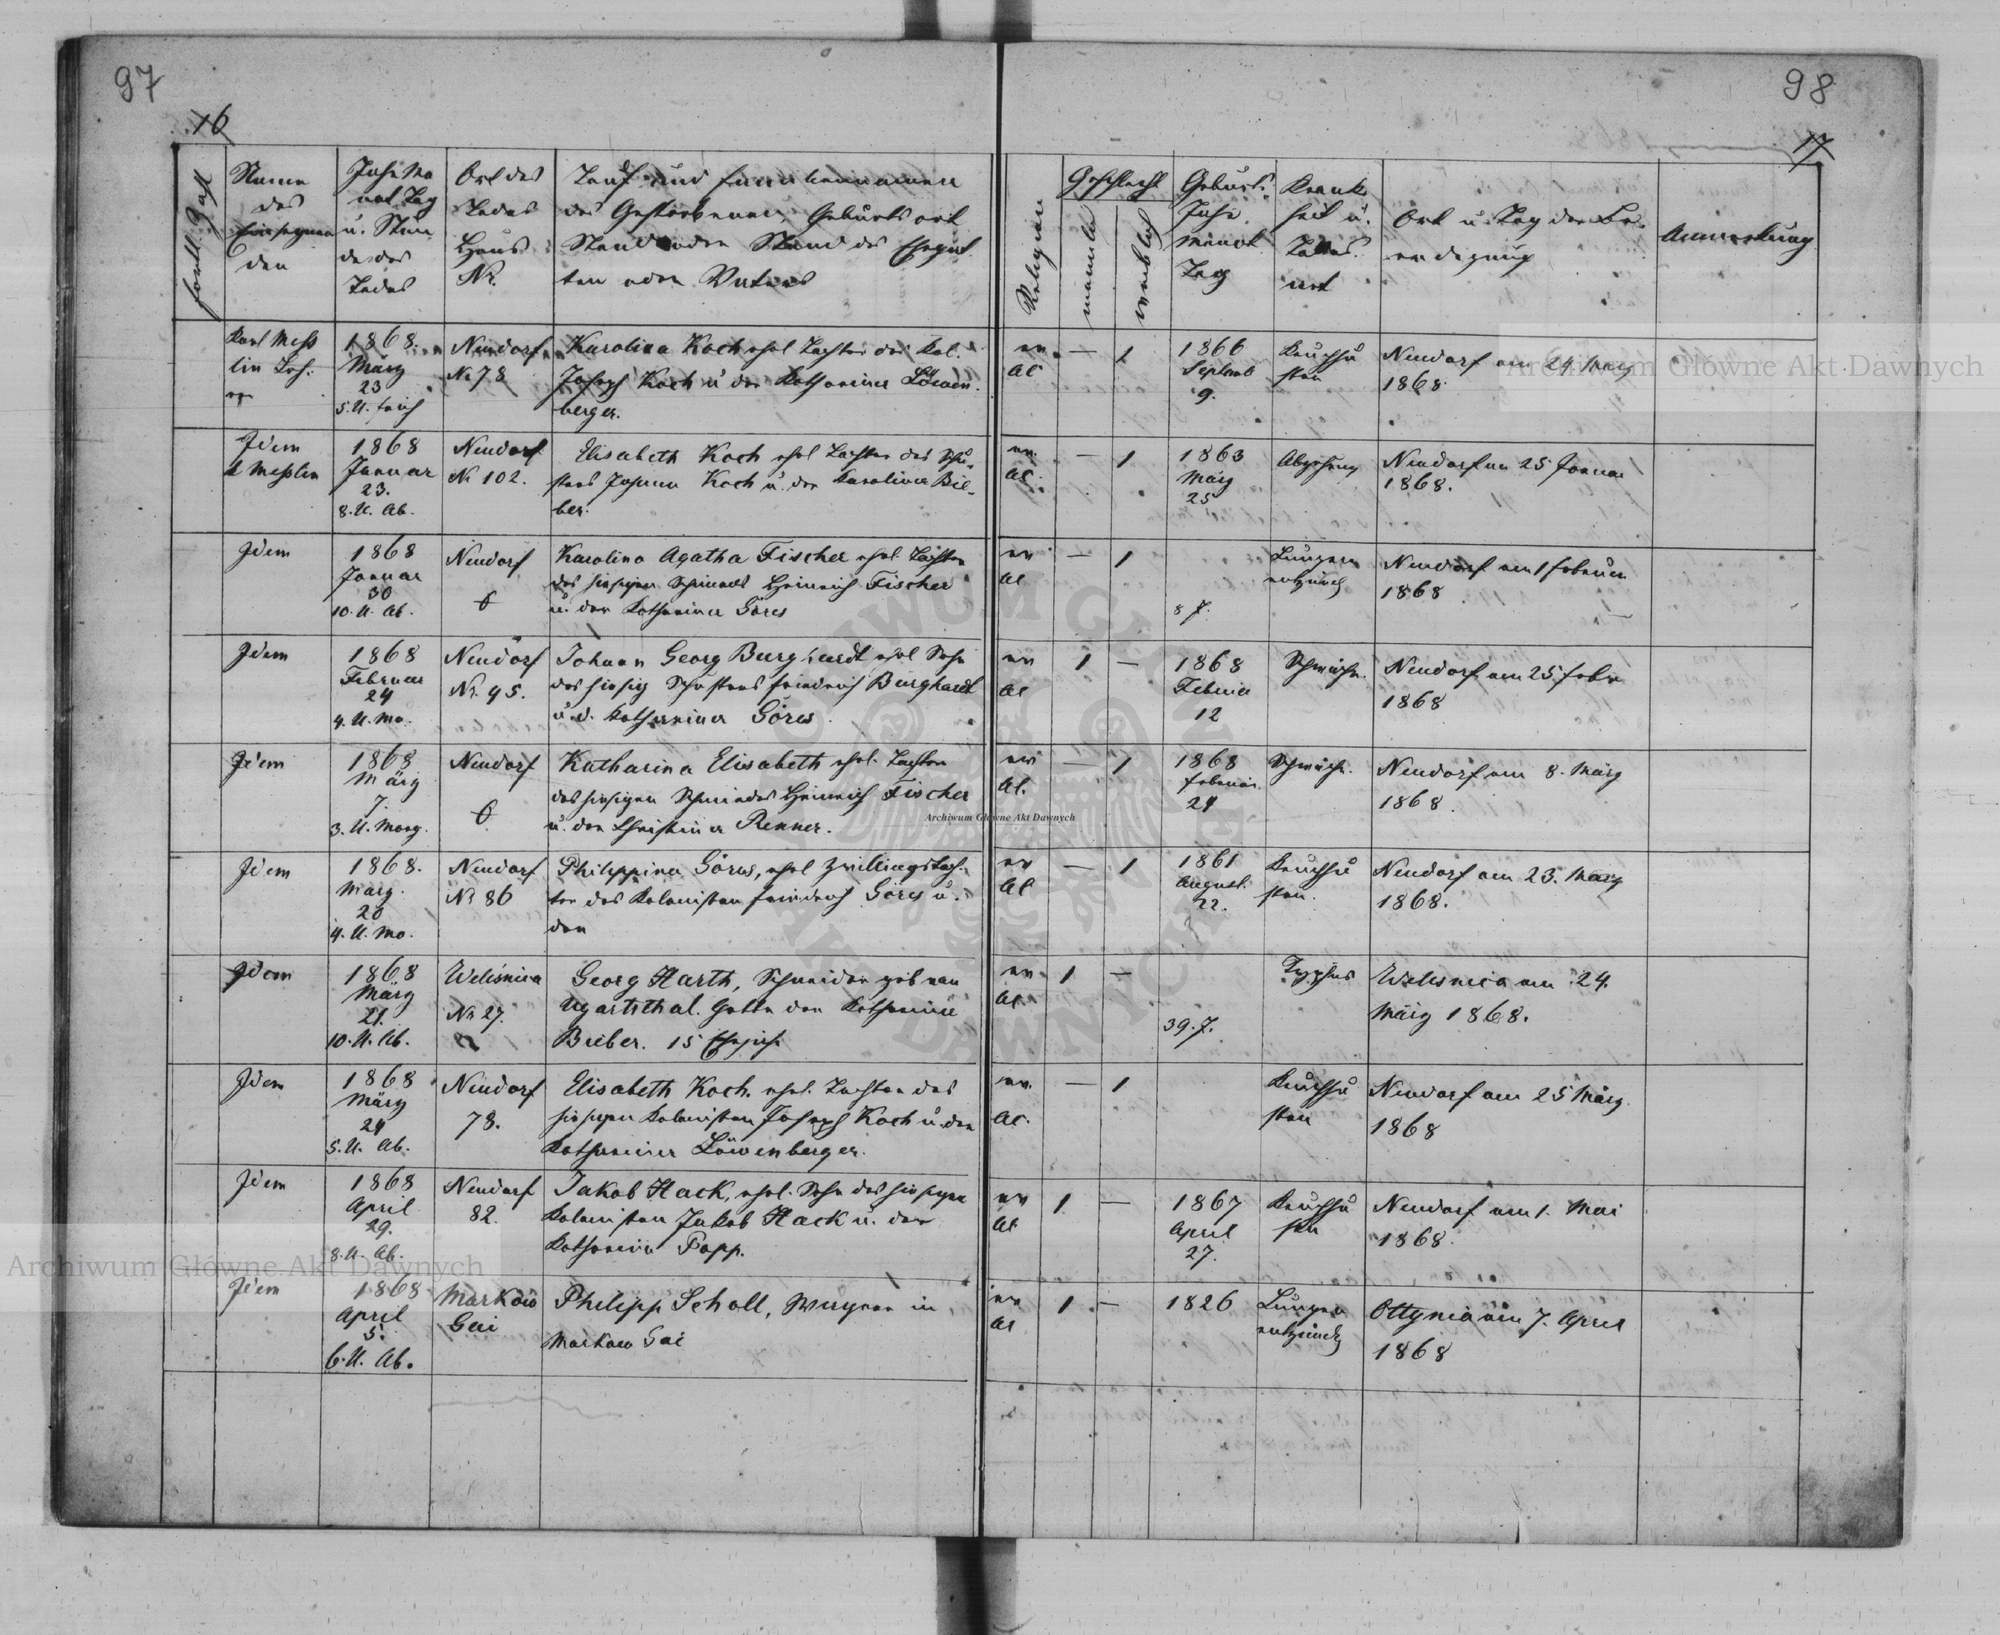 97
98
16
17
fortl. Zahl
Name
des
Einsegnen
den
Jahr Mo
nat Tag
u. Stun
de des
Todes
Ort des
Todes
Haus
Nr.
Tauf und Familiennamen
des Gestorbenen, Geburtsort
Stand oder Stand des Ehegat
ten oder Vaters
Religion
Geschlecht
männlich
weiblich
Geburts
Jahr
Monat
Tag
Krank
heit u.
Todes
art
Ort u. Tag der Be-
erdigung
Anmerkung
Karl Meß
lin
1868.
März
23
5. U. früh
Neudorf
Nr 78
Karolina Koch ehel Tochter des Kol.
Joseph Koch u der Katharina Löwen
berger.
ev.
AC
— 1
1866
Septemb
9.
Keuchhu
sten
Neudorf am 24. März
1868.
Idem
Meßlin
1868
Januar
23.
8. U. Ab.
Neudorf
Nr 102.
Elisabeth Koch ehel Tochter des Schu-
sters Johann Koch u. der Karolina Bie-
ber.
ev.
AC.
— 1
1863
März
25
Abzehrung
Neudorf am 25 Januar
1868.
Idem
1868
Januar
30
10. U. Ab.
Neudorf
6
Karolina Agatha Fischer ehel Tochter
des hiesigen Schmieds Heinrich Fischer
u. der Katharina Göres
ev
AC
— 1
8 J.
Lungen
entzünd
Neudorf am 1 Februar
1868
Idem
1868
Februar
24
4. U. Mo.
Neudorf
Nr. 95.
Johann Georg Burghardt ehel Sohn
des hiesig Schusters Friedrich Burghardt
u. d. Katharina Göres.
ev
AC
1 —
1868
Februar
12
Schwäche.
Neudorf am 25 Febr
1868
Idem
1868
März
7.
3. U. Morg.
Neudorf
6
Katharina Elisabeth ehel. Tochter
des hiesigen Schmiedes Heinrich Fischer
u. der Christina Renner.
ev
AC.
— 1
1868
Februar
24
Schwäche.
Neudorf am 8. März
1868.
Idem
1868.
März.
20
4. U. Mo.
Neudorf
Nr 86
Philippina Göres, ehel Zwillingstoch-
ter des Kolonisten Friedrich Göres u.
der
ev
AC
— 1
1861
August.
22.
Keuchhu
sten.
Neudorf am 23. März
1868.
Idem
1868
März
21.
10. U. Ab.
Welesnica
Nr 27.
Georg Harth, Schneider geb von
Ugartsthal. Gatte der Katharina
Bieber. 15 Ehejah.
ev.
AC.
1 —
39. J.
Typhus
Welesnica am 24.
März 1868.
Idem
1868
März
24
5. U. Ab.
Neudorf
78.
Elisabeth Koch. ehel. Tochter des
hiesigen Kolonisten Joseph Koch u. der
Katharina Löwenberger.
ev.
AC.
— 1
Keuchhu
sten
Neudorf am 25 März
1868
Idem
1868
April
29.
8. U. Ab.
Neudorf
82.
Jakob Hack, ehel. Sohn des hiesigen
Kolonisten Jakob Hack u. der
Katharina Popp.
ev
AC
1 —
1867
April
27.
Keuchhu
sten
Neudorf am 1. Mai
1868.
Idem
1868
April
5.
6. U. Ab.
Markow
Gai
Philipp Scholl, Wagner in
Markow Gai
ev
AC
1 —
1826
Lungen
entzünd
Ottynia am 7. April
1868
Archiwum Główne Akt Dawnych
Archiwum Główne Akt Dawnych
Archiwum Główne Akt Dawnych
ARCHIWUM GŁÓWNE AKT DAWNYCH